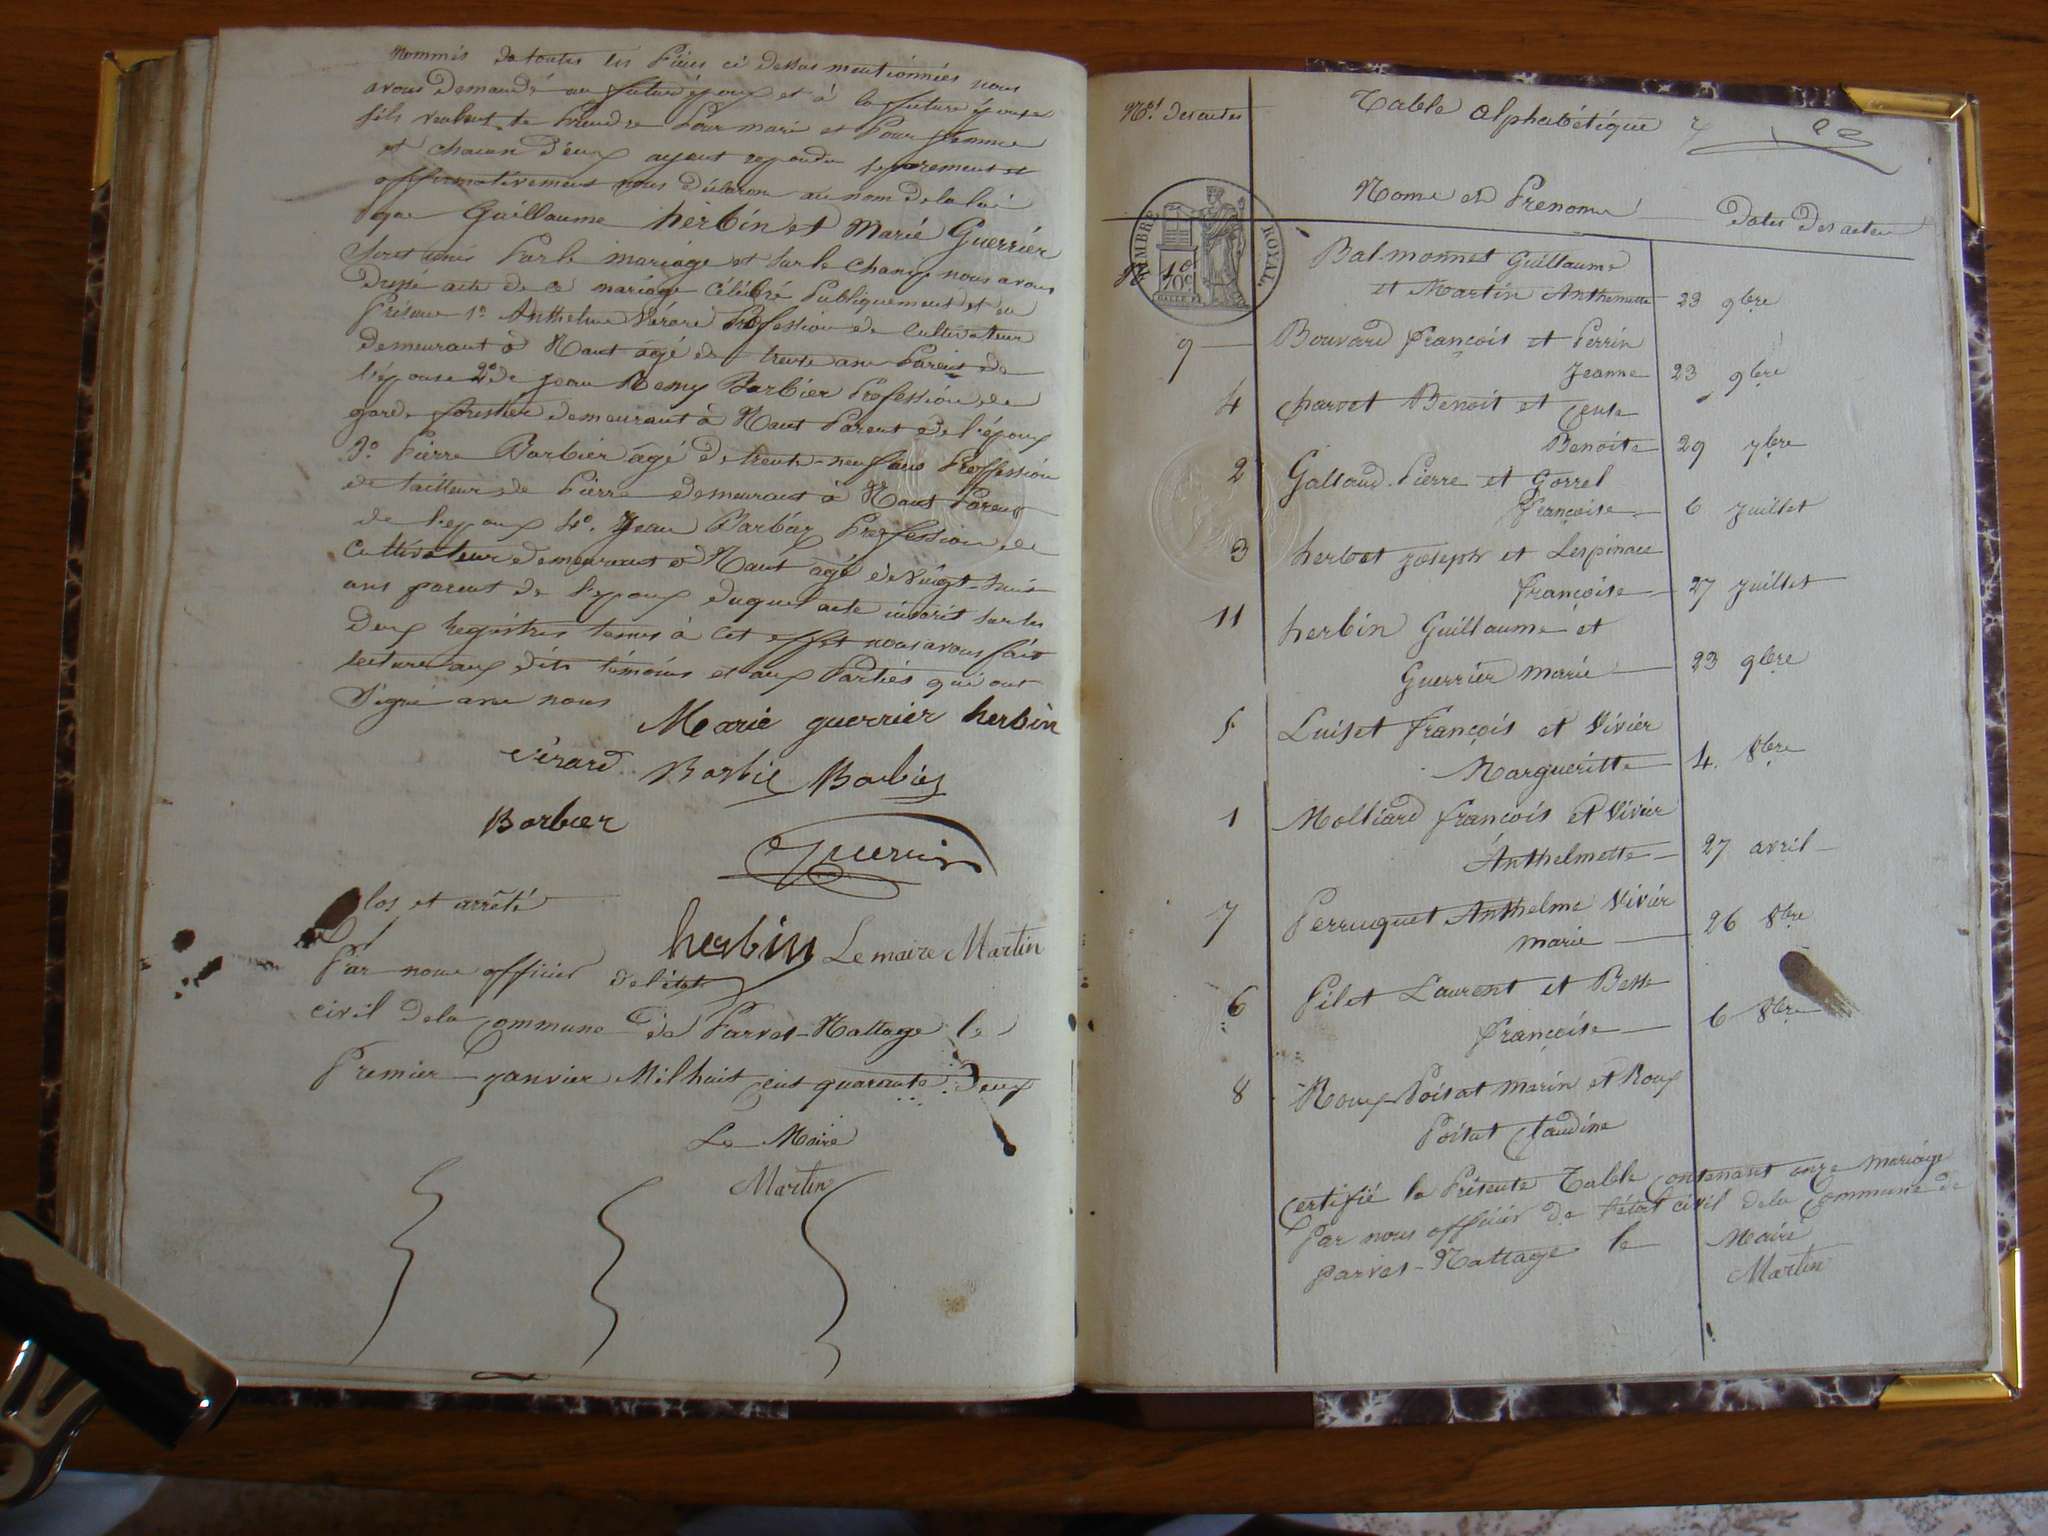 Nommés de toutes les Pièces ci dessus mentionnées nous
avons demandé au futur époux et à la future épouse
s'ils veulent se Prendre Pour mari et Pour femme
et chacun d'eux ayant repondu separement et
affirmativement nous déclaron au nom de la loi
que Guillaume herbin et Marie Guerrier
Sont unis Par le mariage et sur le champ nous avons
Dressé acte de ce mariage Célébré Publiquement et en
Présence 1º Anthelme Vérard Profession de Cultivateur
demeurant à Nant âgé de trente ans Parent de
l'épouse 2º de Jean Remy Barbier Profession de
garde forestier demeurant à Nant Parent de l'époux
3º Pierre Barbier âgé de trente-neuf ans Proffession
de tailleur de Pierre demeurant à Nant Parent
de l'epoux 4º Jean Barbier Profession de
Cultivateur demeurant à Nant âgé de vingt-huit
ans parent de l'epoux duquel acte inscrit sur les
Deux Registres tenus à cet effet nous avons fait
lecture aux dits témoins et aux Parties qui ont
Signé avec nous
Marie guerrier herbin
Vérard Barbie Barbier
Barbier
Guerrier
Clos et arrêté
herbin Le maire Martin
Par nous officier de l'état
civil de la Commune de Parves-Nattage le
Premier janvier Mil huit cent quarante Deux
Le Maire
Martin
Nos. Des actes
Table Alphabétique
Noms et Prenoms
Dates Des actes
TIMBRE ROYAL
70c
Balmonnet Guillaume
et Martin Anthelmette 23 9bre
9 Bouvard François et Perrin
Jeanne 23 9bre
4 Charvet Benoit et
Benoite 29 7bre
2 Galland Pierre et Gorrel
Françoise 6 Juillet
3 herbet Joseph et Lespinace
Françoise 27 Juillet
11 herbin Guillaume et
Guerrier Marie 23 9bre
5 Luiset François et Vivier
Margueritte 4 8bre
1 Molliard François et Vivier
Anthelmette 27 avril
7 Perruquet Anthelme Vivier
marie 26 8bre
6 Pilet Laurent et Bette
Françoise 6 8bre
8 Roux-Poitat Marin et Roux
Poitat Claudine
Certifié la Présente Table contenant onze mariage
Par nous officier de l'état civil de la Commune de
Parves-Nattage le Maire
Martin